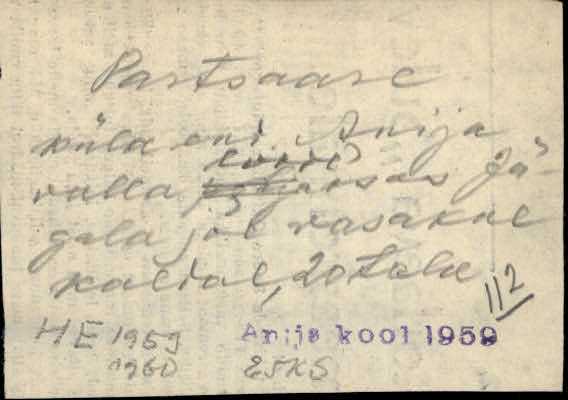 Partsaare
küla end. Anija
valla loode osas Jä-
gala jõe vasakul
kaldal, 20 talu
112
HE 1959
1960
Anija kool 1959
ESKS